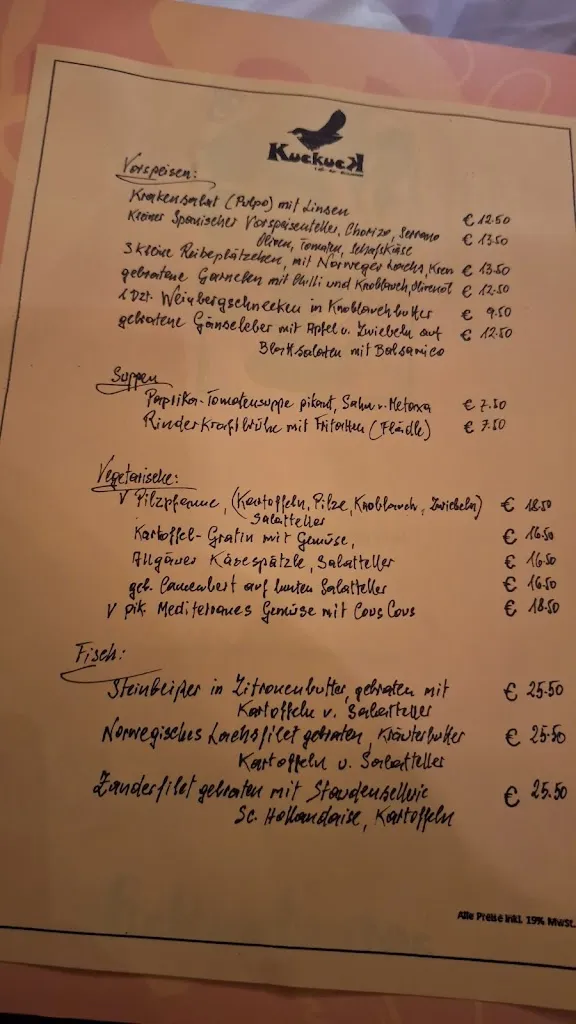 KuckucK
Vorspeisen:
Krakensalat (Pulpo) mit Linsen € 12.50
Kleiner Spanischer Vorspeisenteller, Chorizo, Serrano € 13.50
Oliven, Tomaten, Schafskäse
3 kleine Reibeplätzchen, mit Norweger Lachs, Kren € 13.50
gebratene Garnelen mit Chilli und Knoblauch, Olivenöl € 12.50
1 Dzt. Weinbergschnecken in Knoblauchbutter € 9.50
gebratene Gänseleber mit Apfel u. Zwiebeln auf € 12.50
Blattsalaten mit Balsamico
Suppen
Paprika-Tomatensuppe pikant, Sahne u. Metaxa € 7.50
Rinderkraftbrühe mit Fritatten (Flädle) € 7.50
Vegetarische:
V Pilzpfanne, (Kartoffeln, Pilze, Knoblauch, Zwiebeln) € 18.50
Salatteller
Kartoffel-Gratin mit Gemüse, € 16.50
Allgäuer Käsespätzle, Salatteller € 16.50
geb. Camembert auf bunten Salatteller € 16.50
V pik. Mediteranes Gemüse mit Cous Cous € 18.50
Fisch:
Steinbeißer in Zitronenbutter, gebraten mit € 25.50
Kartoffeln u. Salatteller
Norwegisches Lachsfilet gebraten, Kräuterbutter € 25.50
Kartoffeln u. Salatteller
Zanderfilet gebraten mit Staudensellerie € 25.50
Sc. Hollandaise, Kartoffeln
Alle Preise inkl. 19% MwSt.